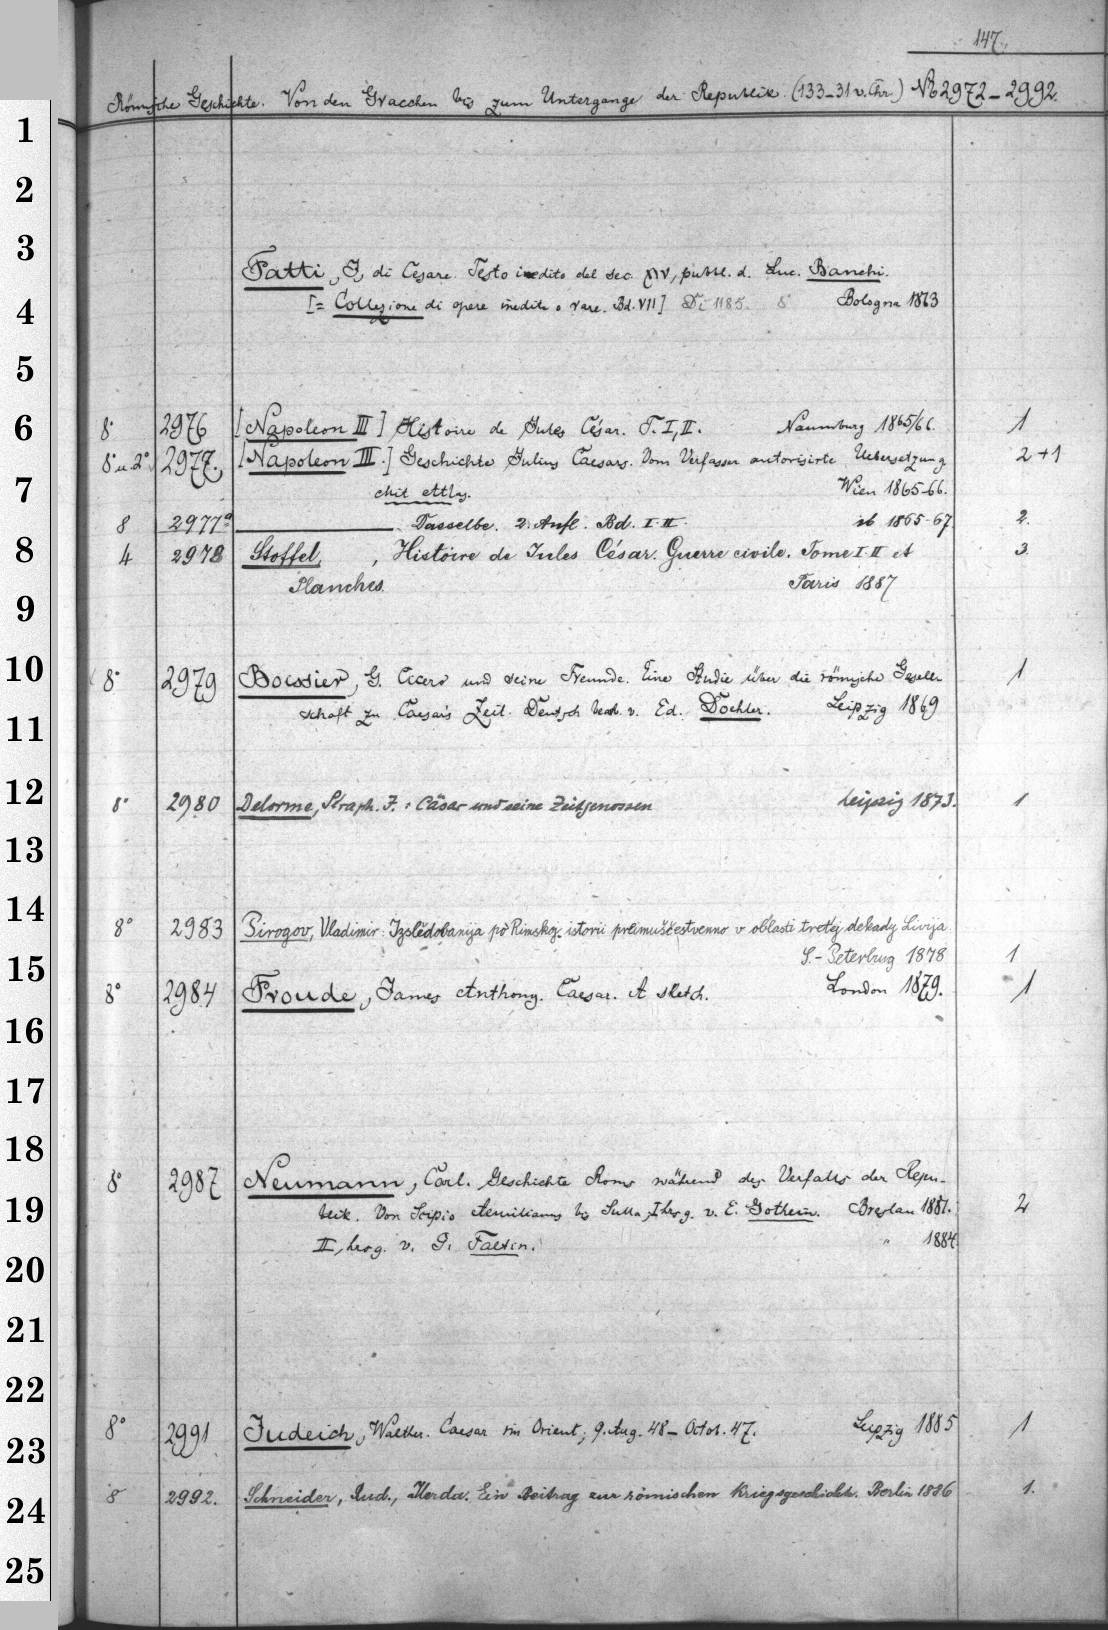 147.
Römische Geschichte. Von den Gracchen bis zum Untergange der Republik. (133-31 v. Chr.) No 2972-2992.
1
2
3
Fatti, I, di Cesare. Testo inedito del sec. XIV, pubbl. d. Luc. Banchi.
[= Collezione di opere inedite o rare. Bd. VII] Di 1185. 8 Bologna 1863
4
5
6
8° 2976 [Napoleon III] Histoire de Jules César. T. I, II. Naumburg 1865/66. 1
8° u. 2° 2977. [Napoleon III.] Geschichte Julius Caesars. Vom Verfasser autorisirte Uebersetzung 2+1
7
mit Atlas. Wien 1865-66.
8 2977a Dasselbe. 2. Aufl. Bd. I-II. ib 1865-67 2.
8
4 2978 Stoffel, , Histoire de Jules César. Guerre civile. Tome I-II et 3.
Planches. Paris 1887
9
10
8° 2979 Boissier, G. Cicero und seine Freunde. Eine Studie über die römische Gesell- 1
schaft zu Caesars Zeit. Deutsch bearb. v. Ed. Doehler. Leipzig 1869
11
12
8° 2980 Delorme, Séraph. J.: Cäsar und seine Zeitgenossen Leipzig 1873. 1
13
14
8° 2983 Pirogov, Vladimir: Izslědovanija po Rimskoj istorii preimuščestvenno v oblasti tretej dekady Livija.
S.-Peterburg 1878 1
15
8° 2984 Froude, James Anthony. Caesar. A sketch. London 1879. 1
16
17
18
8° 2987 Neumann, Carl. Geschichte Roms während des Verfalls der Repu-
19
blik. Von Scipio Aemilianus bis Sulla, I hrsg. v. E. Gothein. Breslau 1881. 2
II, hrsg. v. G. Faltin. " 1884
20
21
22
8° 2991 Judeich, Walther. Caesar im Orient; 9. Aug. 48 - Octob. 47. Leipzig 1885 1
23
8 2992. Schneider, Rud., Ilerda. Ein Beitrag zur römischen Kriegsgeschichte. Berlin 1886 1.
24
25